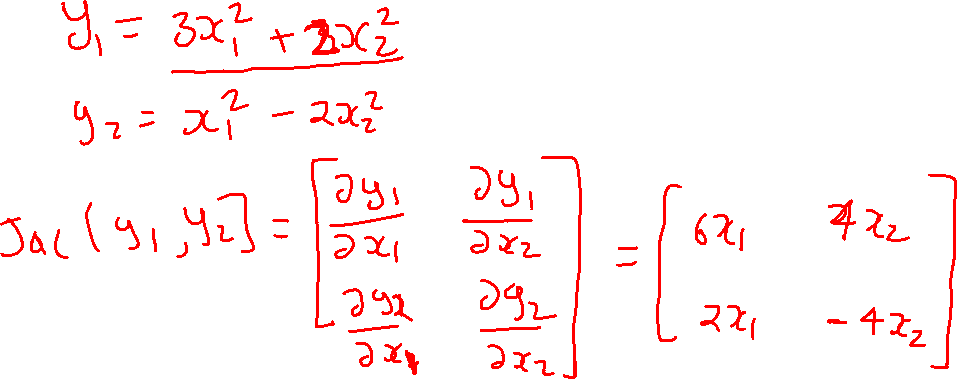 y₁ = 3x₁² + 2x₂²
y₂ = x₁² - 2x₂²
Jac(y₁, y₂] = [∂y₁/∂x₁ ∂y₁/∂x₂ ∂y₂/∂x₁ ∂y₂/∂x₂] = [6x₁ 4x₂ 2x₁ -4x₂]